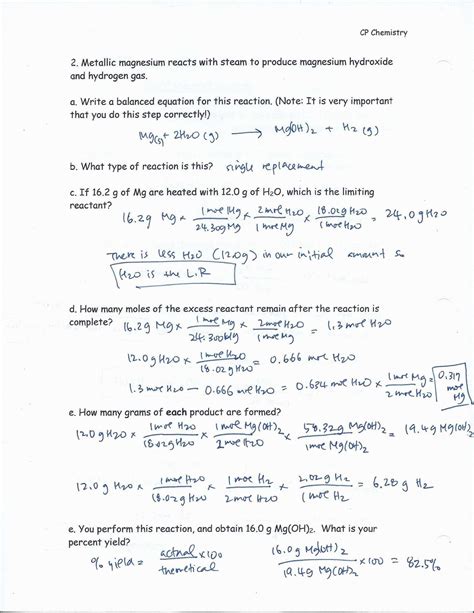 CP Chemistry
2. Metallic magnesium reacts with steam to produce magnesium hydroxide
and hydrogen gas.
a. Write a balanced equation for this reaction. (Note: It is very important
that you do this step correctly!)
Mg(s) + 2H2O (g) → Mg(OH)2 + H2 (g)
b. What type of reaction is this? single replacement
c. If 16.2 g of Mg are heated with 12.0 g of H2O, which is the limiting
reactant?
16.2g Mg × 1 mol Mg / 24.30g Mg × 2 mol H2O / 1 mol Mg × 18.02g H2O / 1 mol H2O = 24.0g H2O
There is less H2O (12.0g) in our initial amount so
H2O is the L.R
d. How many moles of the excess reactant remain after the reaction is
complete? 16.2g Mg × 1 mol Mg / 24.300g Mg × 2 mol H2O / 1 mol Mg = 1.3 mol H2O
12.0g H2O × 1 mol H2O / 18.02g H2O = 0.666 mol H2O
1.3 mol H2O - 0.666 mol H2O = 0.634 mol H2O × 1 mol Mg / 2 mol H2O = 0.317 mol Mg
e. How many grams of each product are formed?
12.0g H2O × 1 mol H2O / 18.02g H2O × 1 mol Mg(OH)2 / 2 mol H2O × 58.32g Mg(OH)2 / 1 mol Mg(OH)2 = 19.4g Mg(OH)2
12.0g H2O × 1 mol H2O / 18.02g H2O × 1 mol H2 / 2 mol H2O × 2.02g H2 / 1 mol H2 = 6.28g H2
e. You perform this reaction, and obtain 16.0 g Mg(OH)2. What is your
percent yield?
% yield = actual / theoretical × 100 16.0g Mg(OH)2 / 19.4g Mg(OH)2 × 100 = 82.5%